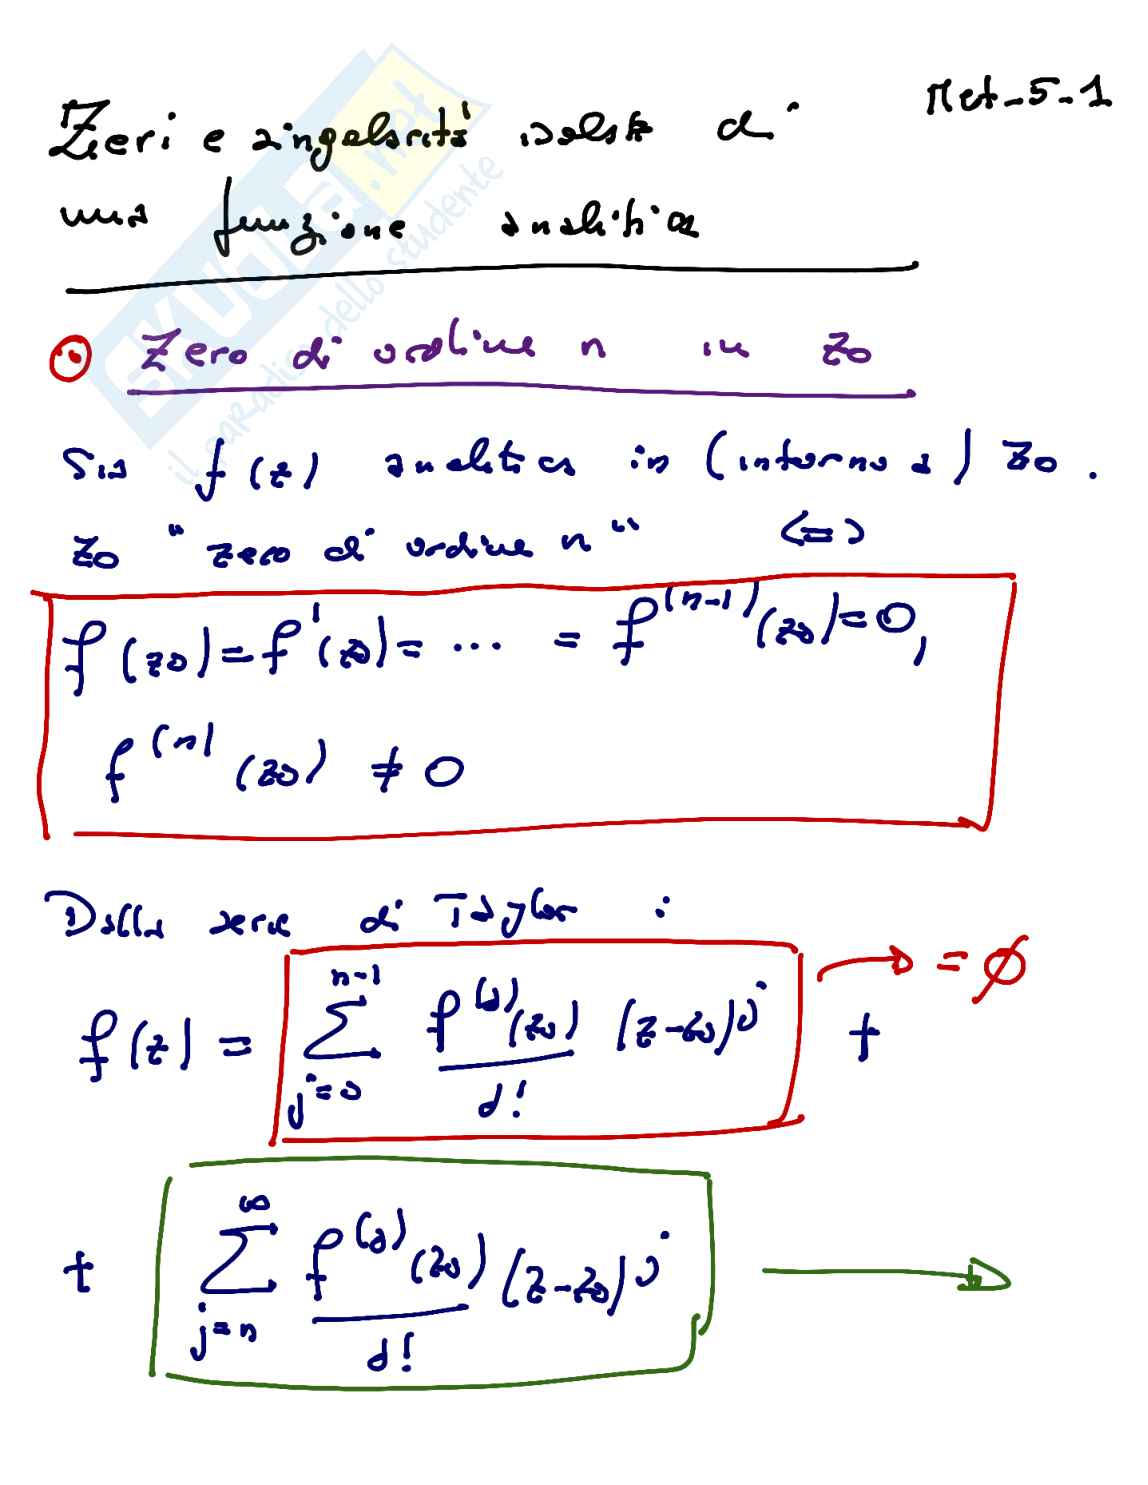 Met-5-1
Zeri e singolarità isolate di
una funzione analitica
Zero di ordine n in z0
Sia f(z) analitica in (intorno a) z0.
z0 "zero di ordine n" <=>
f(z0)=f'(z0)= ... = f^(n-1)(z0)=0,
f^(n)(z0) ≠ 0
Dalla serie di Taylor :
f(z) = ∑_{j=0}^{n-1} f^(j)(z0)/j! (z-z0)^j → = ∅ +
+ ∑_{j=n}^{∞} f^(j)(z0)/j! (z-z0)^j →
SKUOLA.net
il paradiso dello studente